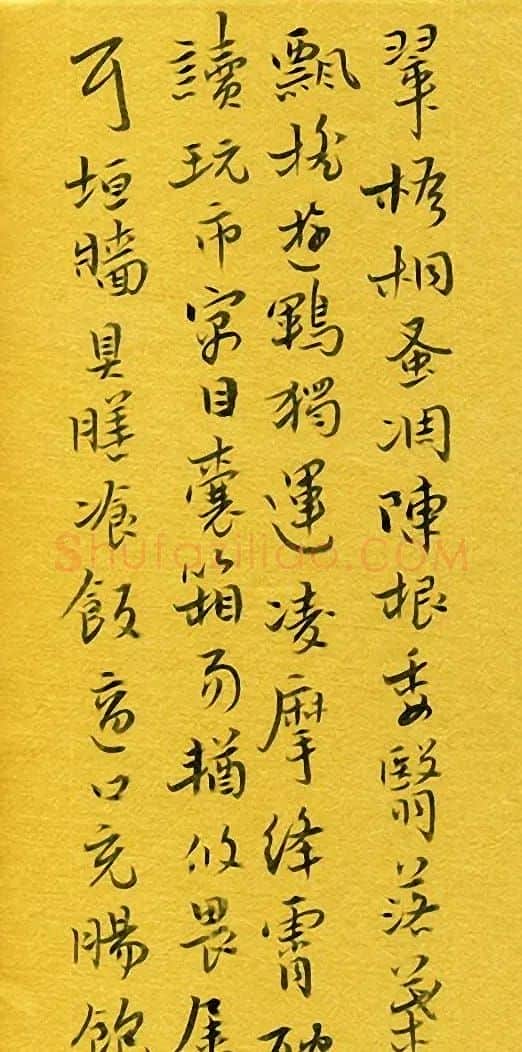 翠梧桐蚤凋陳根委翳落葉
飄搖遊鶤獨運凌摩絳霄耽
讀玩市寓目囊箱易輶攸畏屬
耳垣牆具膳飡飯適口充腸飽
Shufaziliao.COM